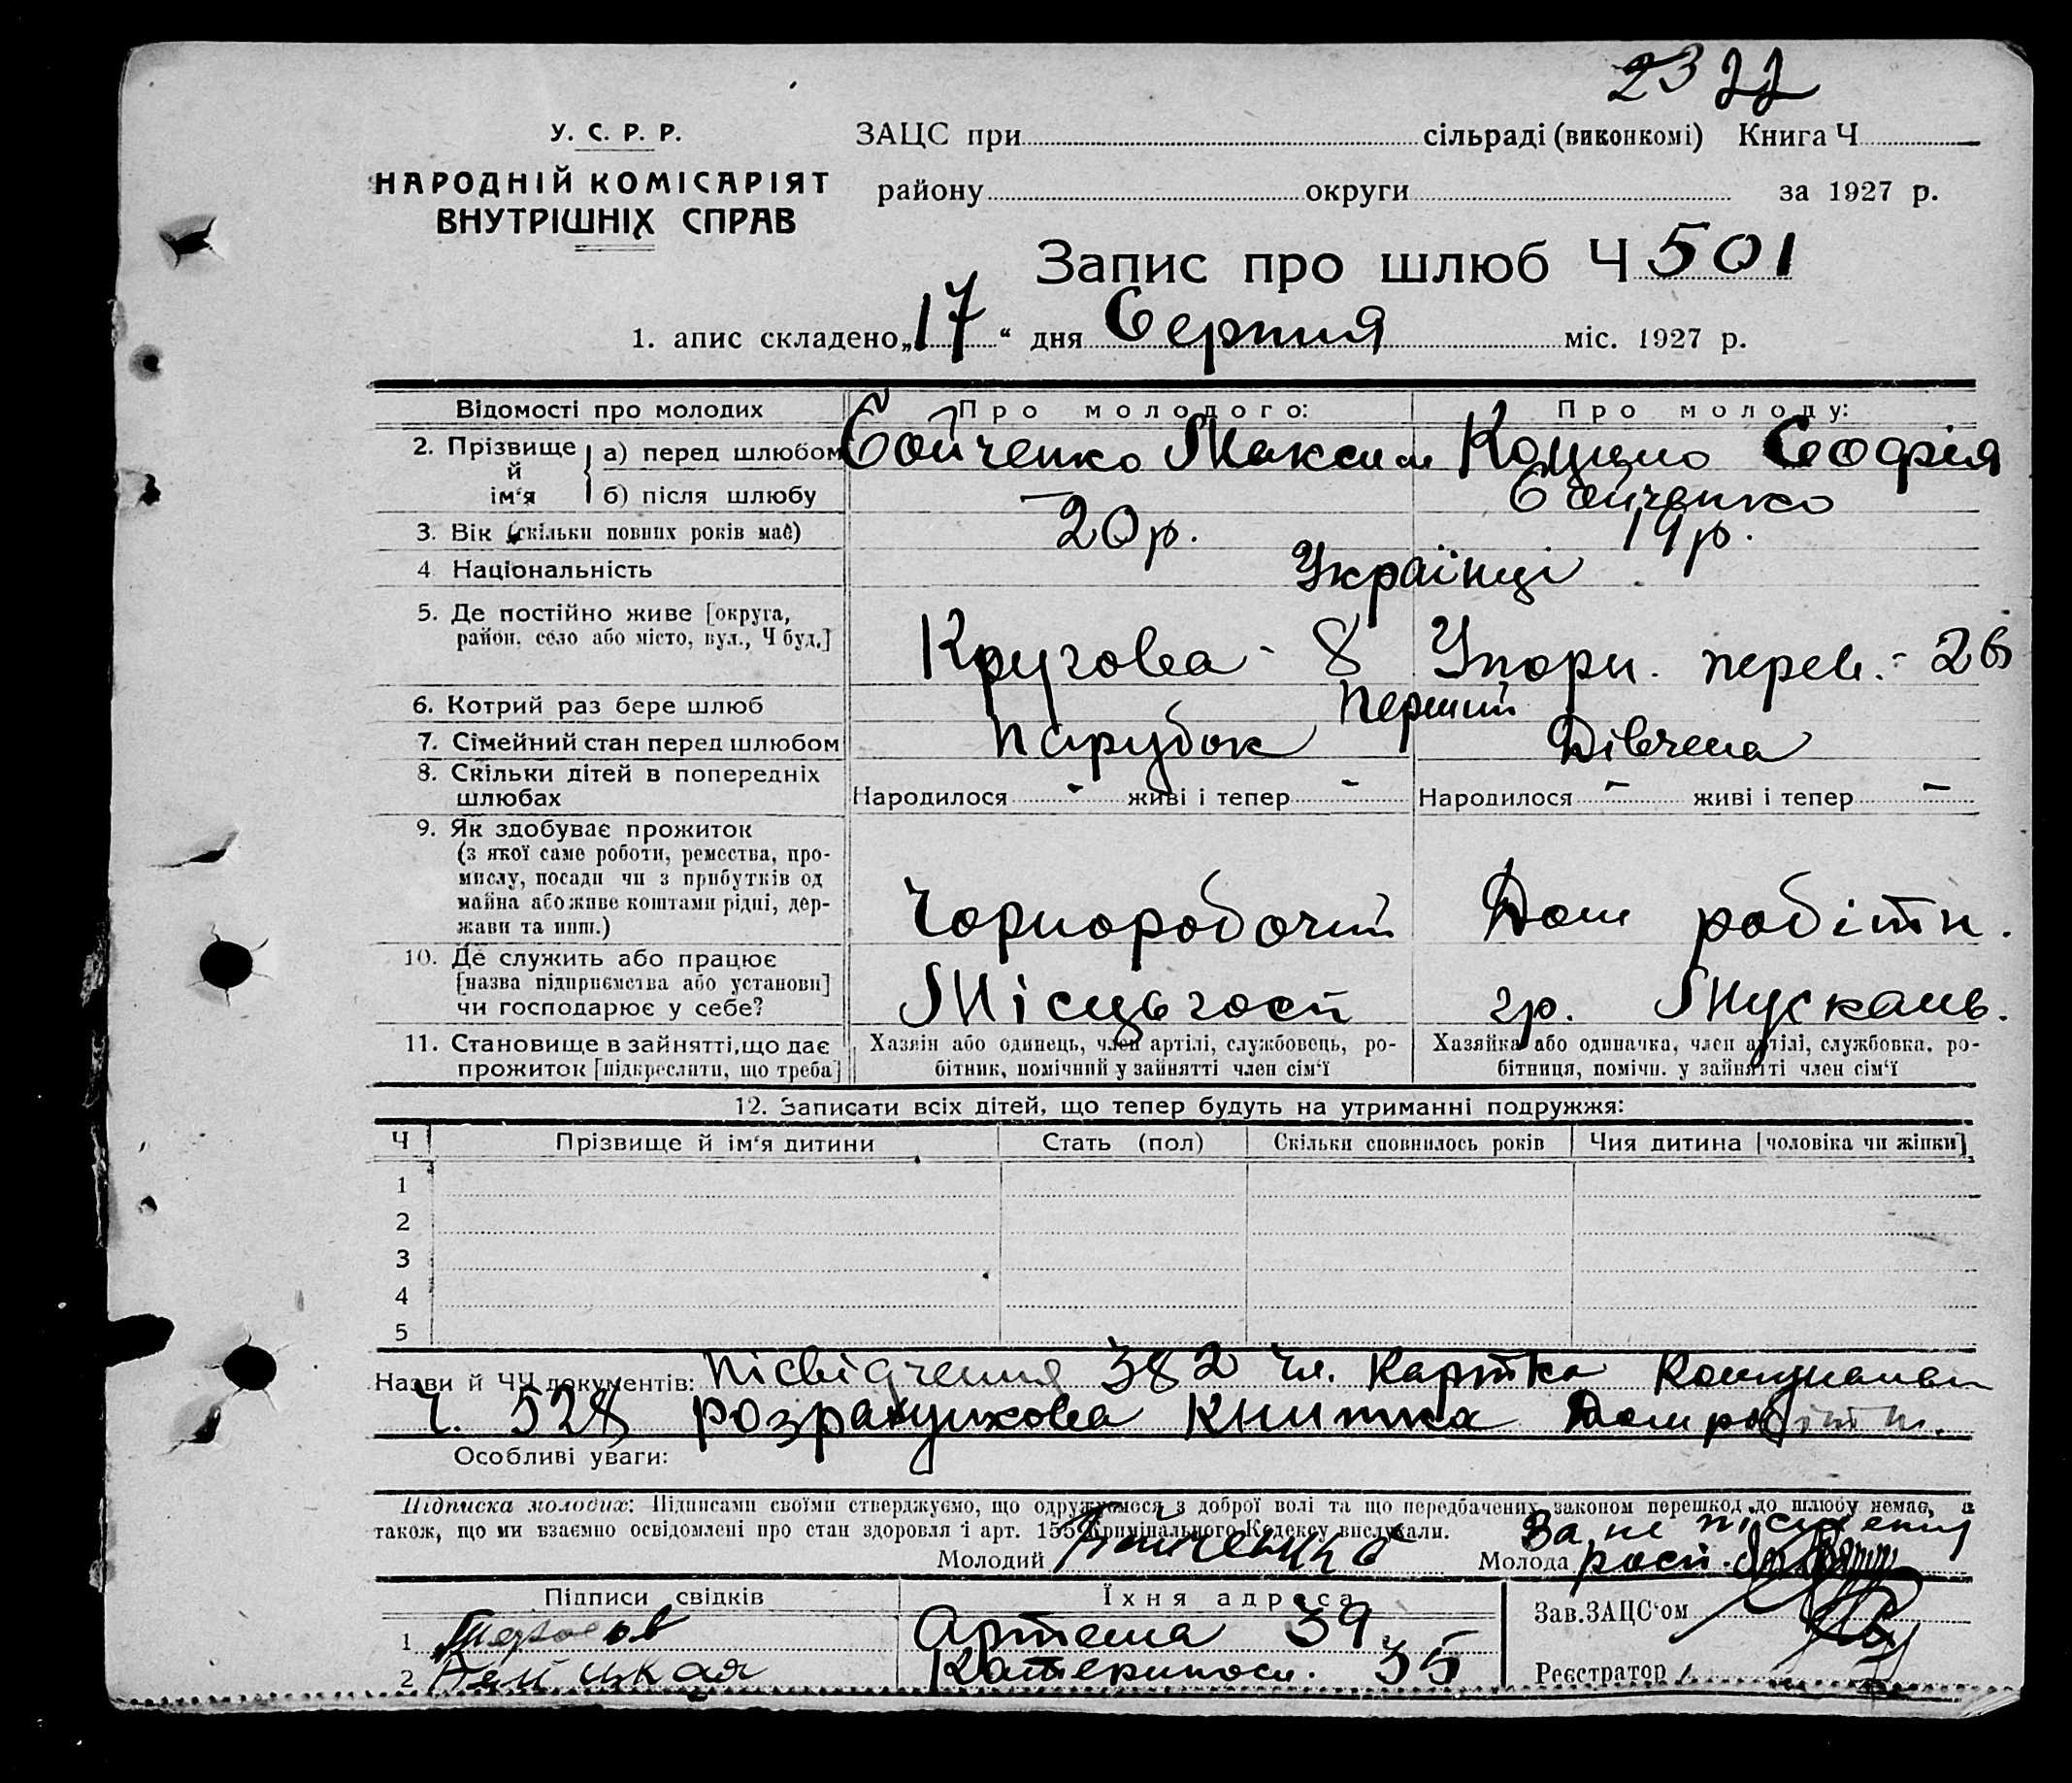 2322
У. С. Р. Р.
НАРОДНІЙ КОМІСАРІЯТ
ВНУТРІШНІХ СПРАВ
ЗАЦС при сільраді (виконкомі) Книга Ч
району округи за 1927 р.
Запис про шлюб Ч 501
1. апис складено „17“ дня Серпня міс. 1927 р.
Відомості про молодих Про молодого: Про молоду:
2. Прізвище й ім'я
а) перед шлюбом Бойченко Максим Софія
б) після шлюбу — Бойченко
3. Вік (скільки повних років має) 20 р. 19 р.
4 Національність Українці
5. Де постійно живе [округа,
район, село або місто, вул., Ч буд.] Кругова - 8 перев. - 26
6. Котрий раз бере шлюб Перший
7. Сімейний стан перед шлюбом Парубок Дівчена
8. Скільки дітей в попередніх
шлюбах Народилося - живі і тепер - Народилося - живі і тепер -
9. Як здобуває прожиток
(з якої саме роботи, ремества, про-
мислу, посади чи з прибутків од
майна або живе коштами рідні, дер-
жави та инш.) Чорноробочий Дом робітн.
10. Де служить або працює
[назва підприємства або установи]
чи господарює у себе? Місцьгосп гр.
11. Становище в зайнятті, що дає
прожиток [підкреслити, що треба]
Хазяін або одинець, член артілі, службовець, ро-
бітник, помічний у зайнятті член сім'ї
Хазяйка або одиначка, член артілі, службовка, ро-
бітниця, помічн. у зайнятті член сім'ї
12. Записати всіх дітей, що тепер будуть на утриманні подружжя:
Ч Прізвище й ім'я дитини Стать (пол) Скільки сповнилось років Чия дитина [чоловіка чи жінки]
1
2
3
4
5
Назви й ЧЧ документів: Посвідчення 382 Чл. картка
Ч. 528 розрахункова книжка Домробітн.
Особливі уваги:
Підписка молодих: Підписами своїми стверджуємо, що одружуємося з доброї волі та що передбачених законом перешкод до шлюбу немає, а
також, що ми взаємно освідомлені про стан здоровля і арт. 155 Кримінального Кодексу вислухали.
Молодий Бойченко Молода
Підписи свідків Їхня адреса
1 Артема 39
2 Катериносл. 35
Зав. ЗАЦС'ом
Реєстратор